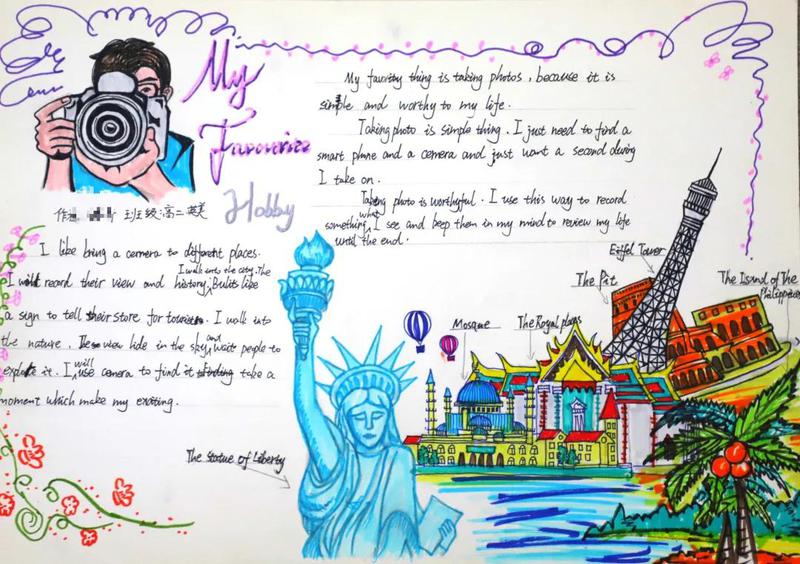 My
Favourite
Hobby
班级:高二英美
My favority thing is taking photos, because it is
simple and worthy to my life.
Taking photo is simple thing. I just need to find a
smart phone and a camera and just want a second during
I take on.
Taking photo is worthyful. I use this way to record
something what I see and keep them in my mind to review my life
until the end.
I like bring a camera to different places.
I will record their view and history. I walk into the city. The Bulits like
a sign to tell their store for tourists. I walk into
the nature. The view hide in the sky and wait people to
explore it. I will use camera to find take a
moment which make my exciting.
The Statue of Liberty
Mosque
The Royal
The Pit
Eiffel Tower
The Island of The
Philippines